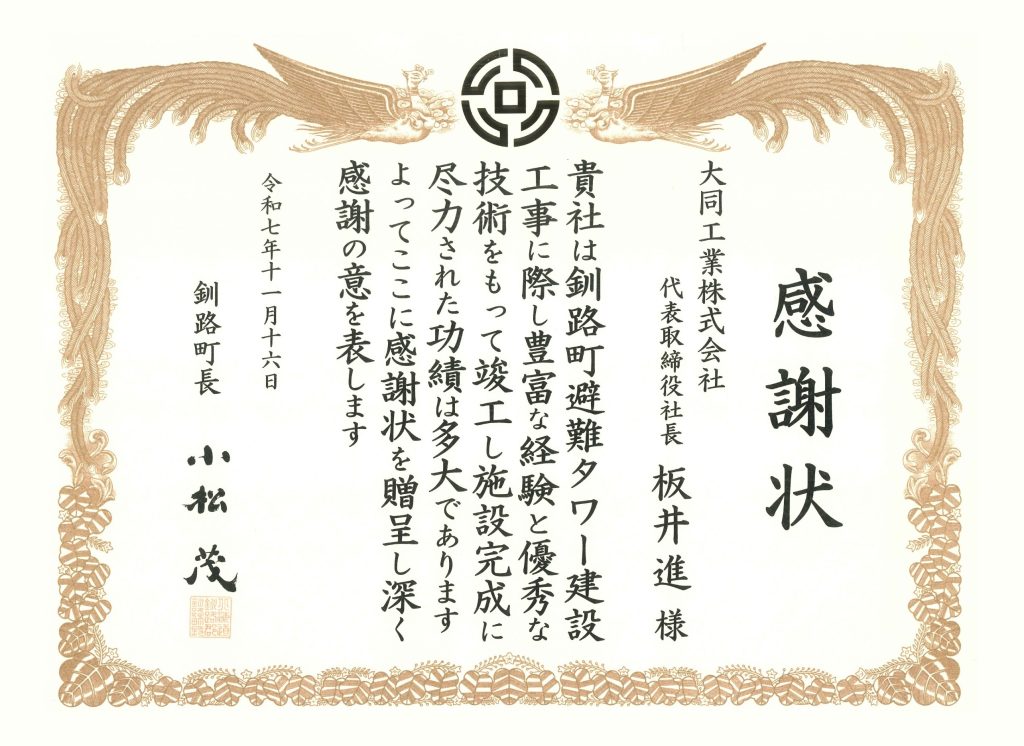 感謝状
大同工業株式会社
代表取締役社長 板井進 様
貴社は釧路町避難タワー建設
工事に際し豊富な経験と優秀な
技術をもって竣工し施設完成に
尽力された功績は多大であります
よってここに感謝状を贈呈し深く
感謝の意を表します
令和七年十一月十六日
釧路町長 小松 茂